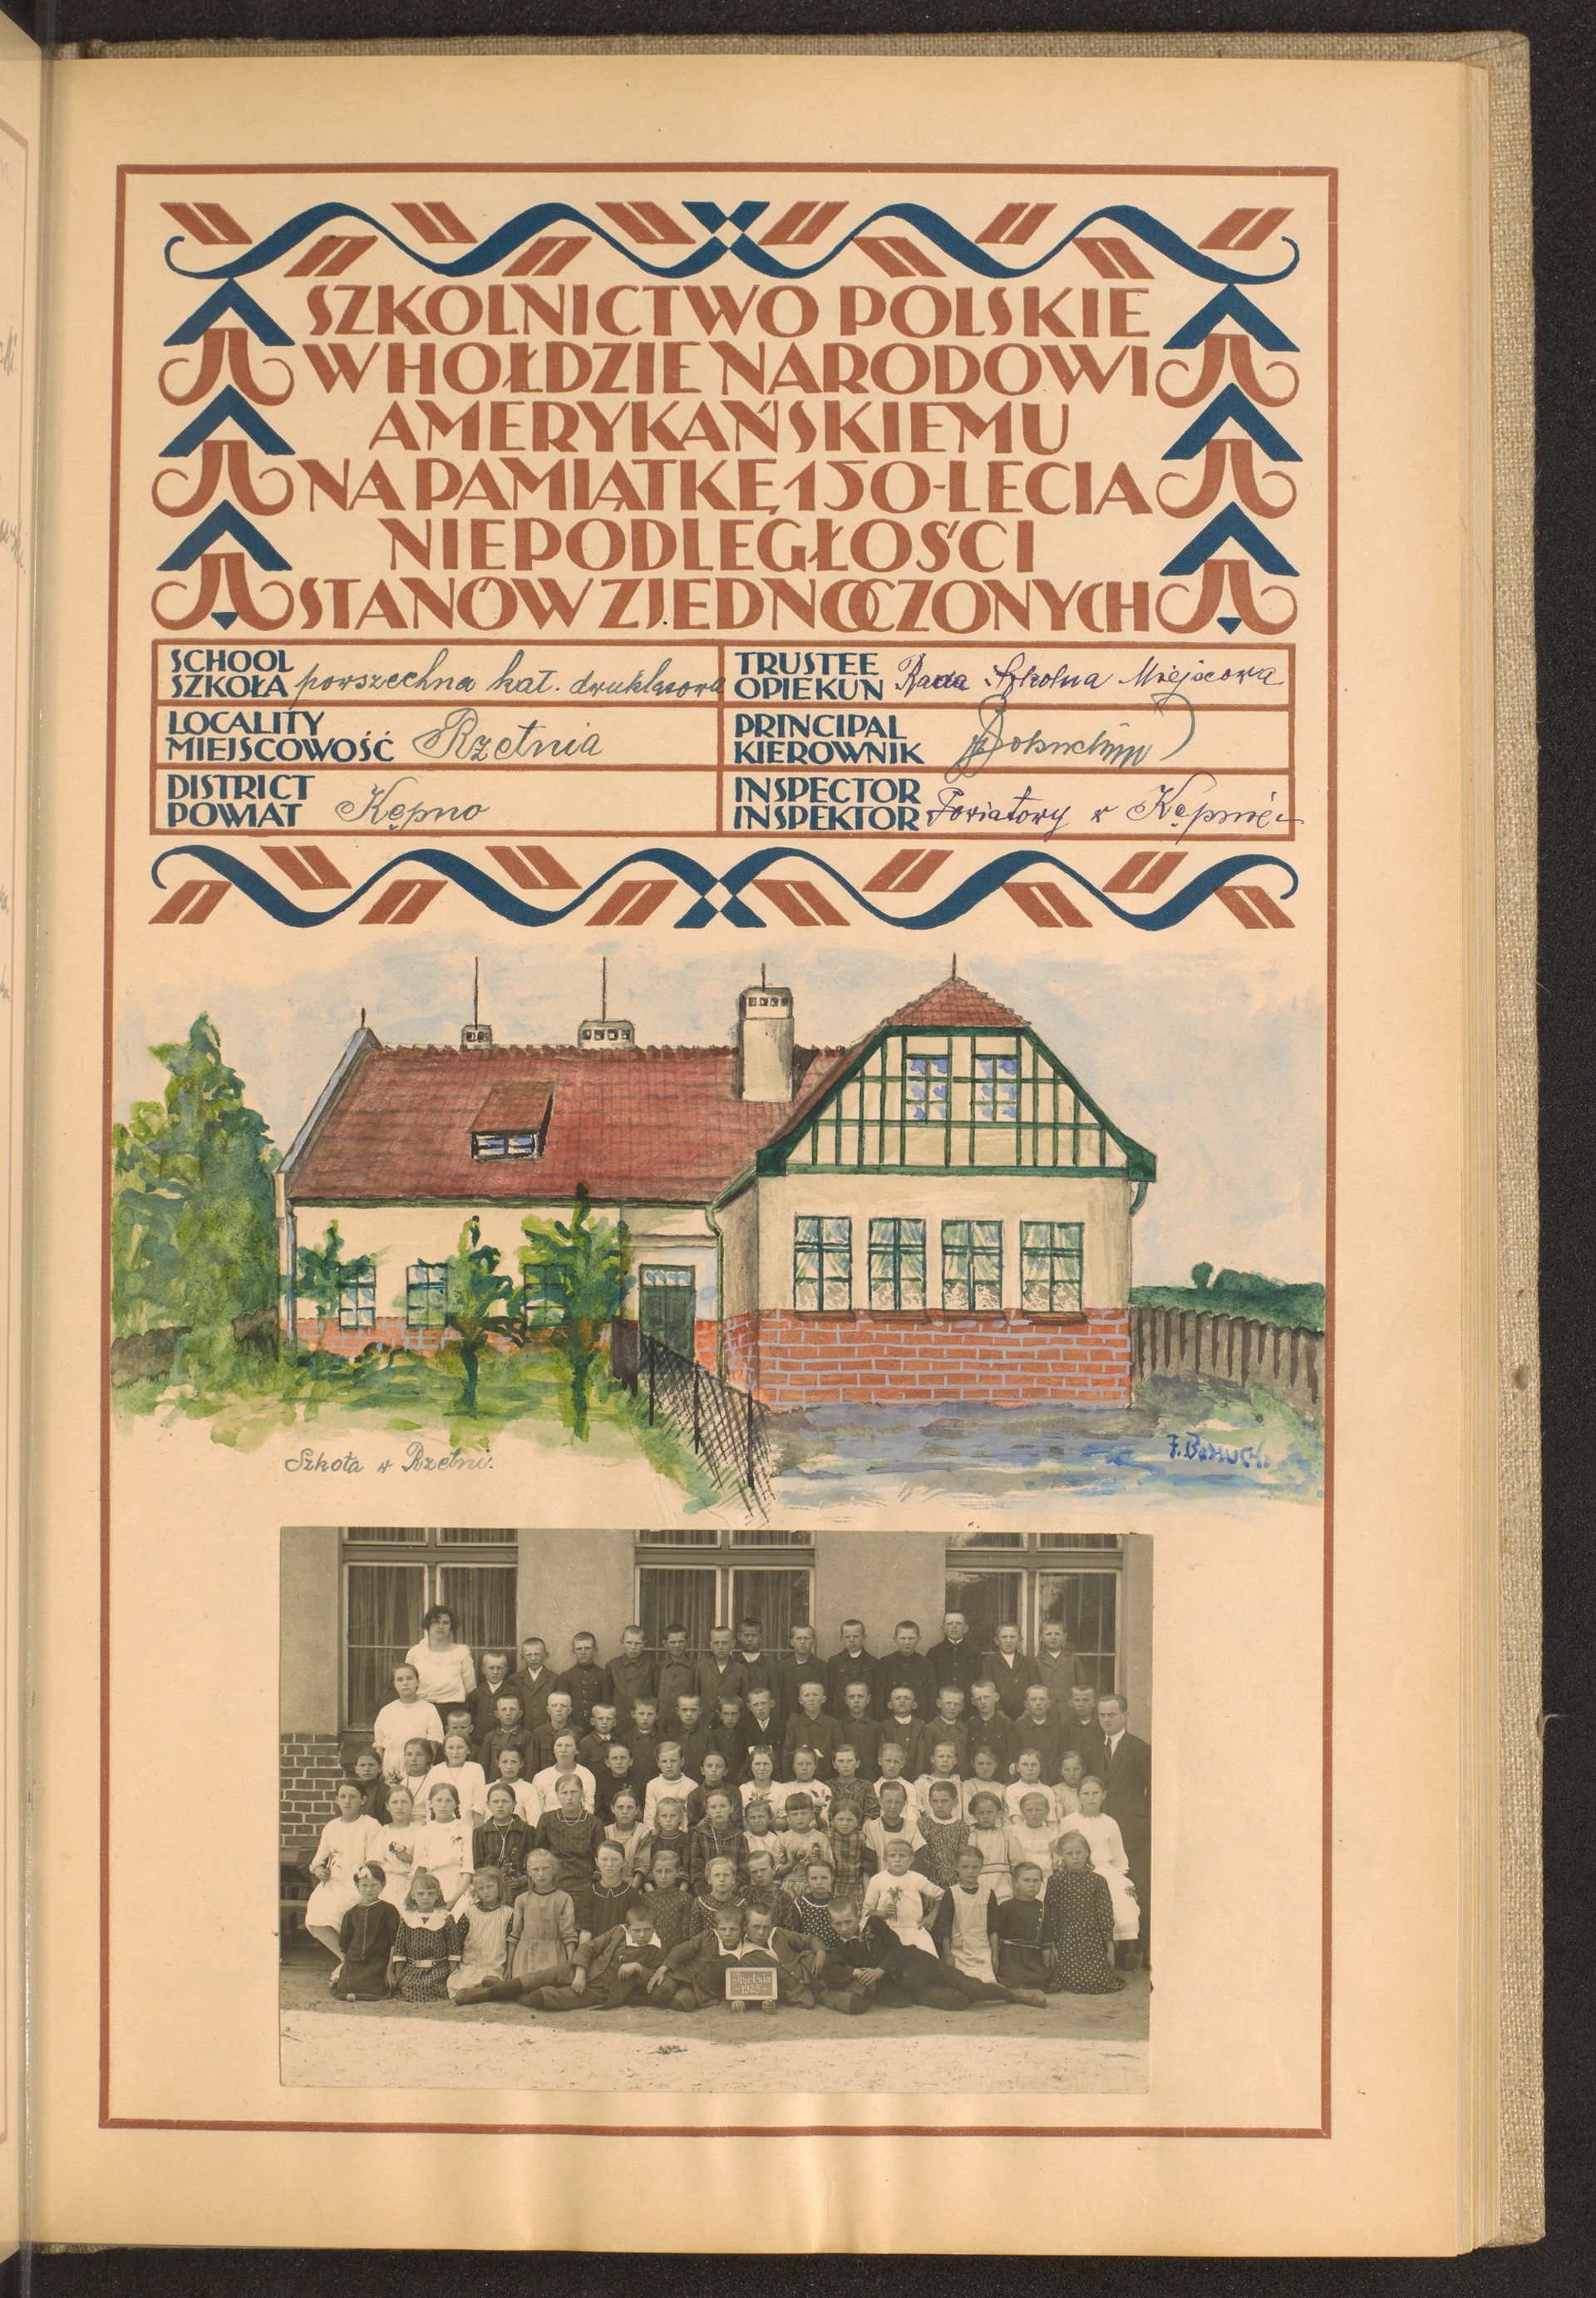 SZKOLNICTWO POLSKIE
W HOŁDZIE NARODOWI
AMERYKAŃSKIEMU
NA PAMIĄTKĘ 150-LECIA
NIEPODLEGŁOŚCI
STANÓW ZJEDNOCZONYCH
SCHOOL
SZKOŁA powszechna kat. dwuklasowa
TRUSTEE
OPIEKUN Rada Szkolna Miejscowa
LOCALITY
MIEJSCOWOŚĆ Rzetnia
PRINCIPAL
KIEROWNIK
DISTRICT
POWIAT Kępno
INSPECTOR
INSPEKTOR Powiatowy w Kępnie
Szkoła w Rzetni.
Rzetnia
-1925-